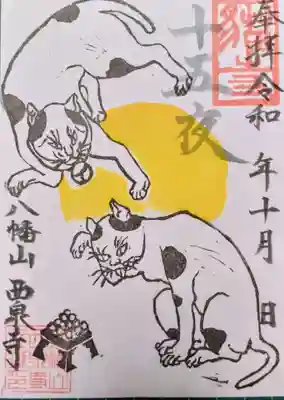 奉拝令和 年十月 日
十五夜
八幡山 西泉寺